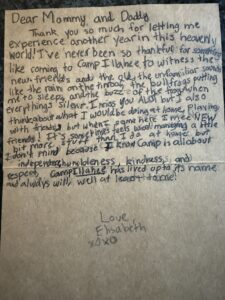 Dear Mommy and Daddy
Thank you so much for letting me
experience another year in this heavenly
world! I've never been so thankful for something
like coming to Camp Illahee to witness the
new friends and the old, the unfamiliar sounds
like the rain on the the buildings putting
me to sleep, and the buzz of the fog when
everything's silent. I miss you ALOT but I also
think about what I would be doing at home. Playing
with friends, but when I came here I meet NEW
friends! It's sometimes feels weird managing a little
bit more stuff than I do at home but
I don't mind because I know Camp is all about
independence, humbleness, kindness, and
respect. Camp Illahee has lived up to its name
and always will, well at least to me!
Love
Elisabeth
xoxo